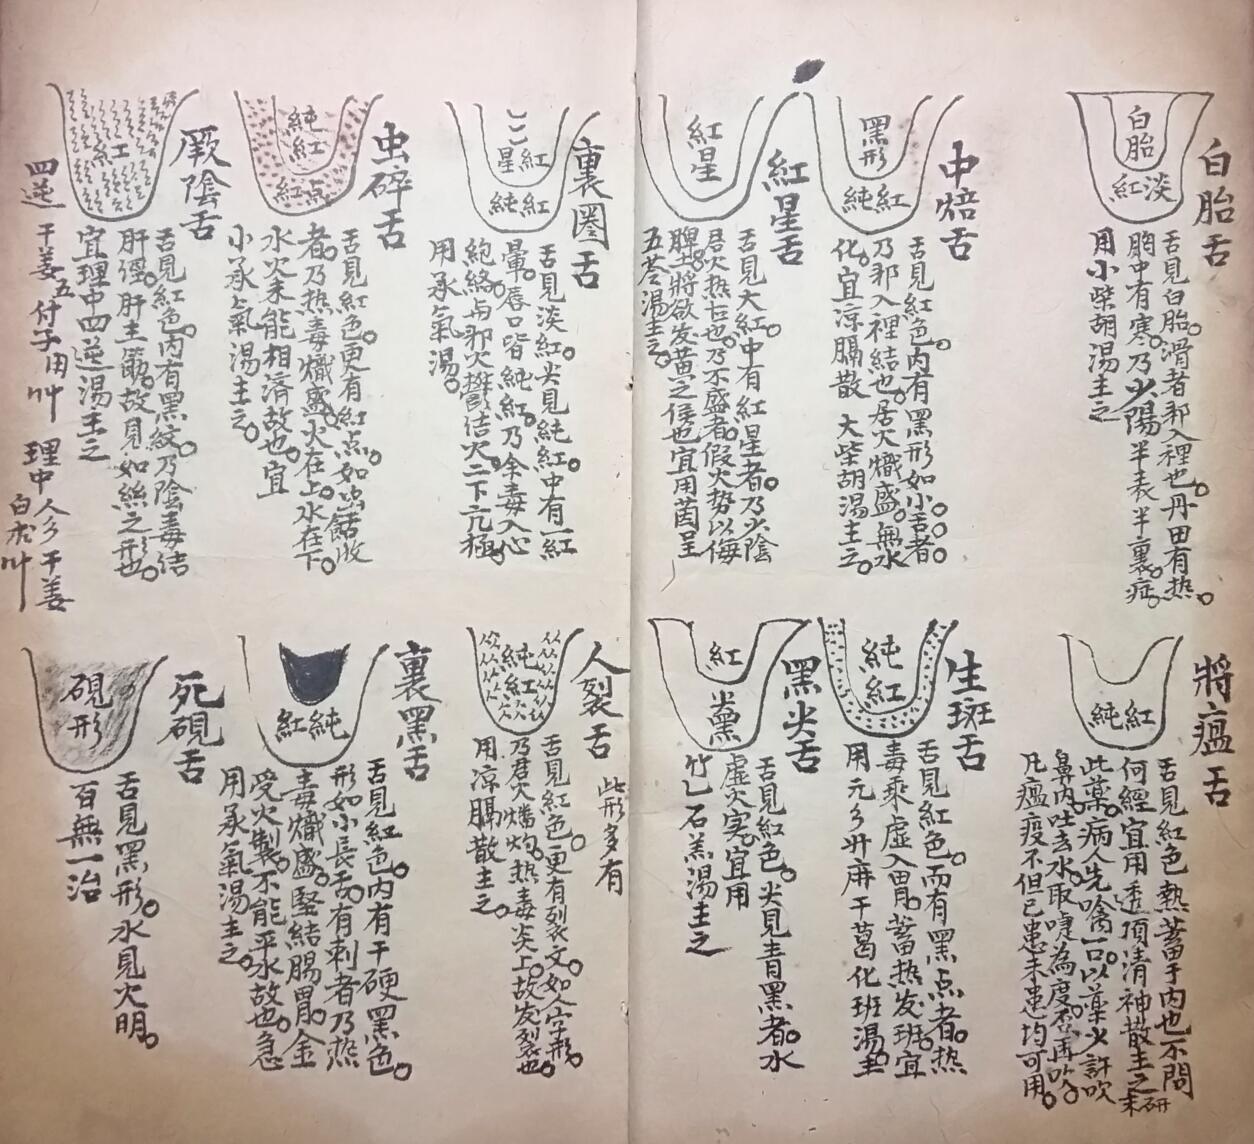 白胎舌
白胎
淡紅
舌見白胎滑者邪入裡也丹田有热。
胸中有寒。乃少陽半表半裏症。
用小柴胡湯主之
中焙舌
黑形
純紅
舌見紅色。内有黑形如小舌者。
乃邪入裡結也。居火熾盛。無水
化。宜凉膈散 大柴胡湯主之。
紅星舌
紅星
舌見大紅。中有紅星者。乃少陰
君火热
也。乃不盛者。假火势以侮
脾土。將欲发黄之候也宜用茵呈
五苓湯主之。
裏圈舌
紅星
純紅
舌見淡紅。尖見純紅。中有一紅
暈。唇口皆純紅。乃余毒入心
絶絡与邪火鬱结火二下亢極
用承氣湯。
虫碎舌
純紅
紅点
舌見紅色。更有紅点如虫
者。乃热毒熾盛。火在上。水在下。
水火未能相済故也。宜
小承气湯主之。
厥陰舌
紅
舌見紅色。内有黑紋。乃陰毒结
肝經。肝主筋。故見如絲之形也。
宜理中四逆湯主之
四逆 干姜五付子用艸 理中 人參干姜
白朮艸
將瘟舌
純紅
舌見紅色熱蓄于内也不問
何經宜用透頂清神散主之研末
此藥。病人先噙一口。以藥少許吹
鼻内。吐去水。取嚏為度。否再吹。
凡瘟疫不但已患未患均可用。
生斑舌
純紅
舌見紅色。而有黑点者。热
毒乘虛入胃。蓄热发班。宜
用元參升麻干葛化班湯主
黑尖舌
紅
尖黨
舌見紅色。尖見青黑者。水
虛火实。宜用
竹七石羔湯主之
人裂舌
此形多有
純紅
舌見紅色。更有裂文。如人字形。
乃君火燔灼。热毒炎上。故发裂也。
用凉膈散主之。
裏黑舌
純紅
舌見紅色。内有干硬黑色。
形如小長舌。有刺者乃热
毒熾盛。堅結腸胃。金
受火製。不能平水故也。急
用承氣湯主之。
死硯舌
硯形
舌見黑形。水見火明。
百無一治